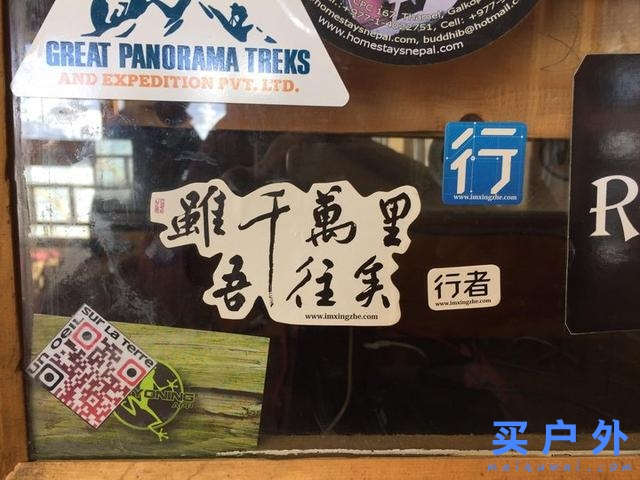 GREAT PANORAMA TREKS
AND EXPEDITION PVT. LTD.
www.homestaysnepal.com, buddhib@hotmail.c
行
www.imxingzhe.com
雖千萬里
吾往矣
www.imxingzhe.com
行者
www.imxingzhe.com
R
un oeil sur la terre
YONING
买户外